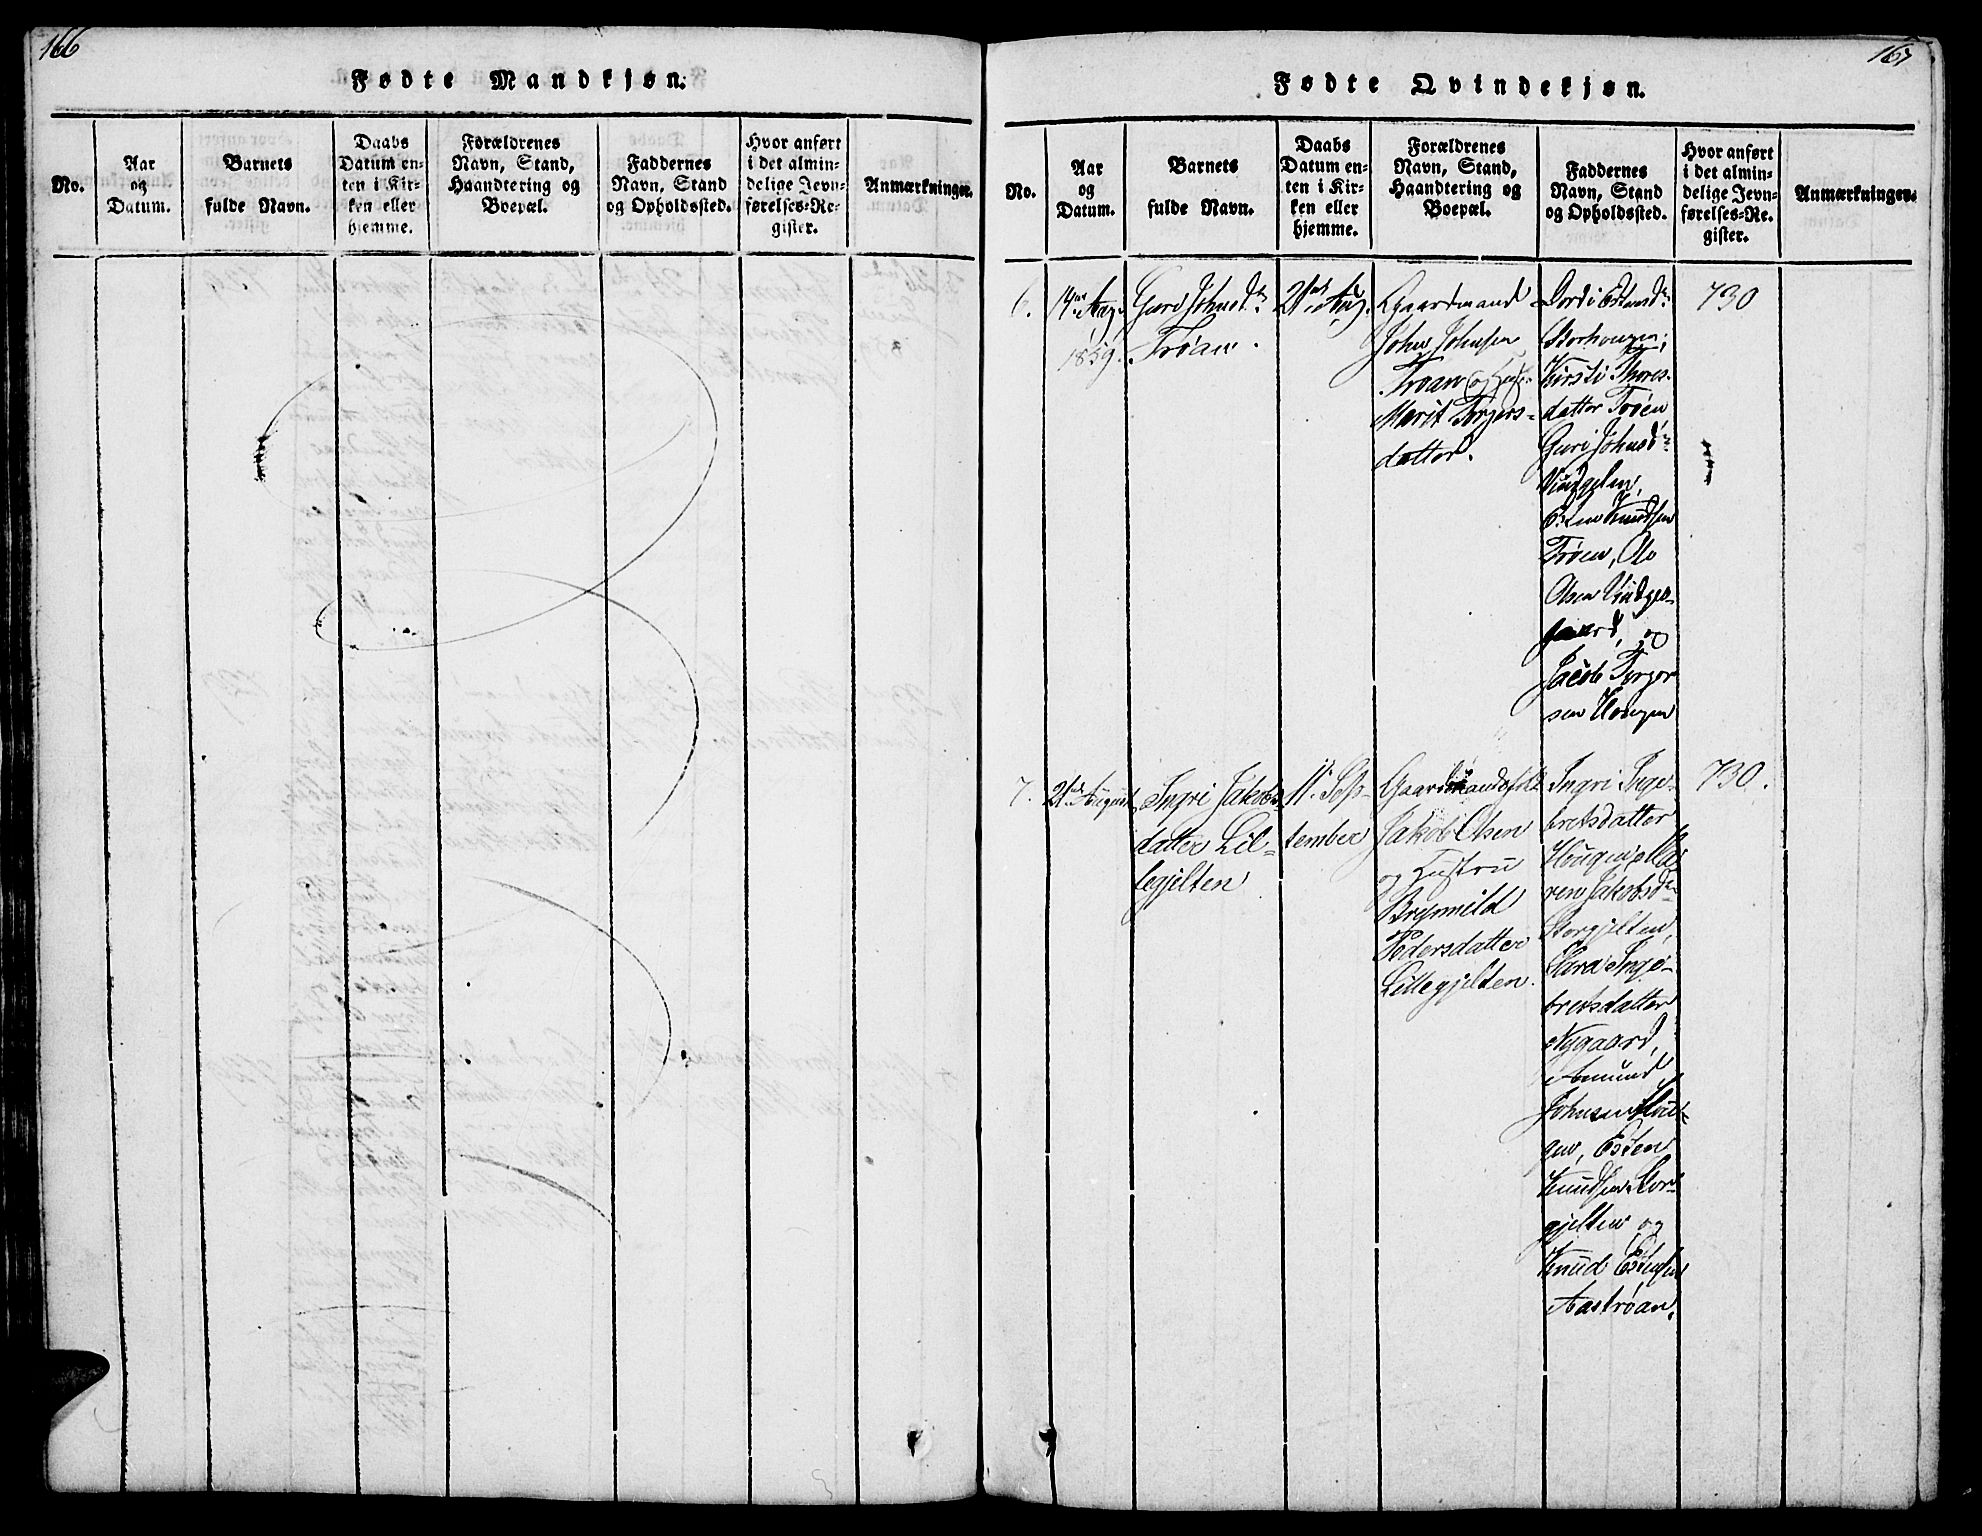 166
Fødte Mandkjøn.
No.
Aar
og
Datum.
Barnets
fulde Navn.
Daabs
Datum en-
ten i Kir-
ken eller
hjemme.
Forældrenes
Navn, Stand,
Haandtering og
Boepæl.
Faddernes
Navn, Stand
og Opholdssted.
Hvor anført
i det almin-
delige Jevn-
førelses-Re-
gister.
Anmærkninger.
167
Fødte Qvindekjøn.
No.
Aar
og
Datum.
Barnets
fulde Navn.
Daabs
Datum en-
ten i Kir-
ken eller
hjemme.
Forældrenes
Navn, Stand,
Haandtering og
Boepæl.
Faddernes
Navn, Stand
og Opholdssted.
Hvor anført
i det almin-
delige Jevn-
førelses-Re-
gister.
Anmærkninger.
6.
14de Aug.
1859.
Guri Johnsdr
Trøan.
21de Aug.
Gaardmand
John Johnsen
Trøan og Hustr.
Marit Torgers-
datter.
Dordi Estensdr
Storhougen,
Kirsti Thores-
datter Trøen
Guri Johnsdr
Vingelen,
Esten Knudsen
Trøen, Ole
Olsen
gaard, og
Jacob Torger
sen Hougen
730
7.
21de August
Ingri Jakobs-
datter Lil-
legjelten
11. Sep-
tember
Gaardmandsfolk
Jakob Olsen
og Hustru
Brynnild
Pedersdatter
Lillegjelten.
Ingri Inge-
bretsdatter
Hougen, Ma-
ren Jakobsdr
Storgjelten,
Sara Inge-
bretsdatter
Nygaard,
Amund
Johnsen Hou-
gen, Esten
Knudsen Stor-
gjelten og
Knud Estensen
Aastrøan.
730.